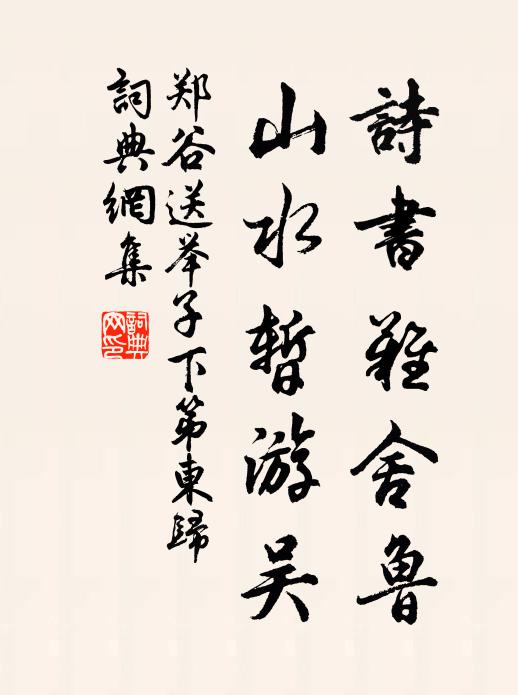 詩書難舍魯
山水暫游吴
郑谷送举子下第東歸
詞典網集
詞典网印